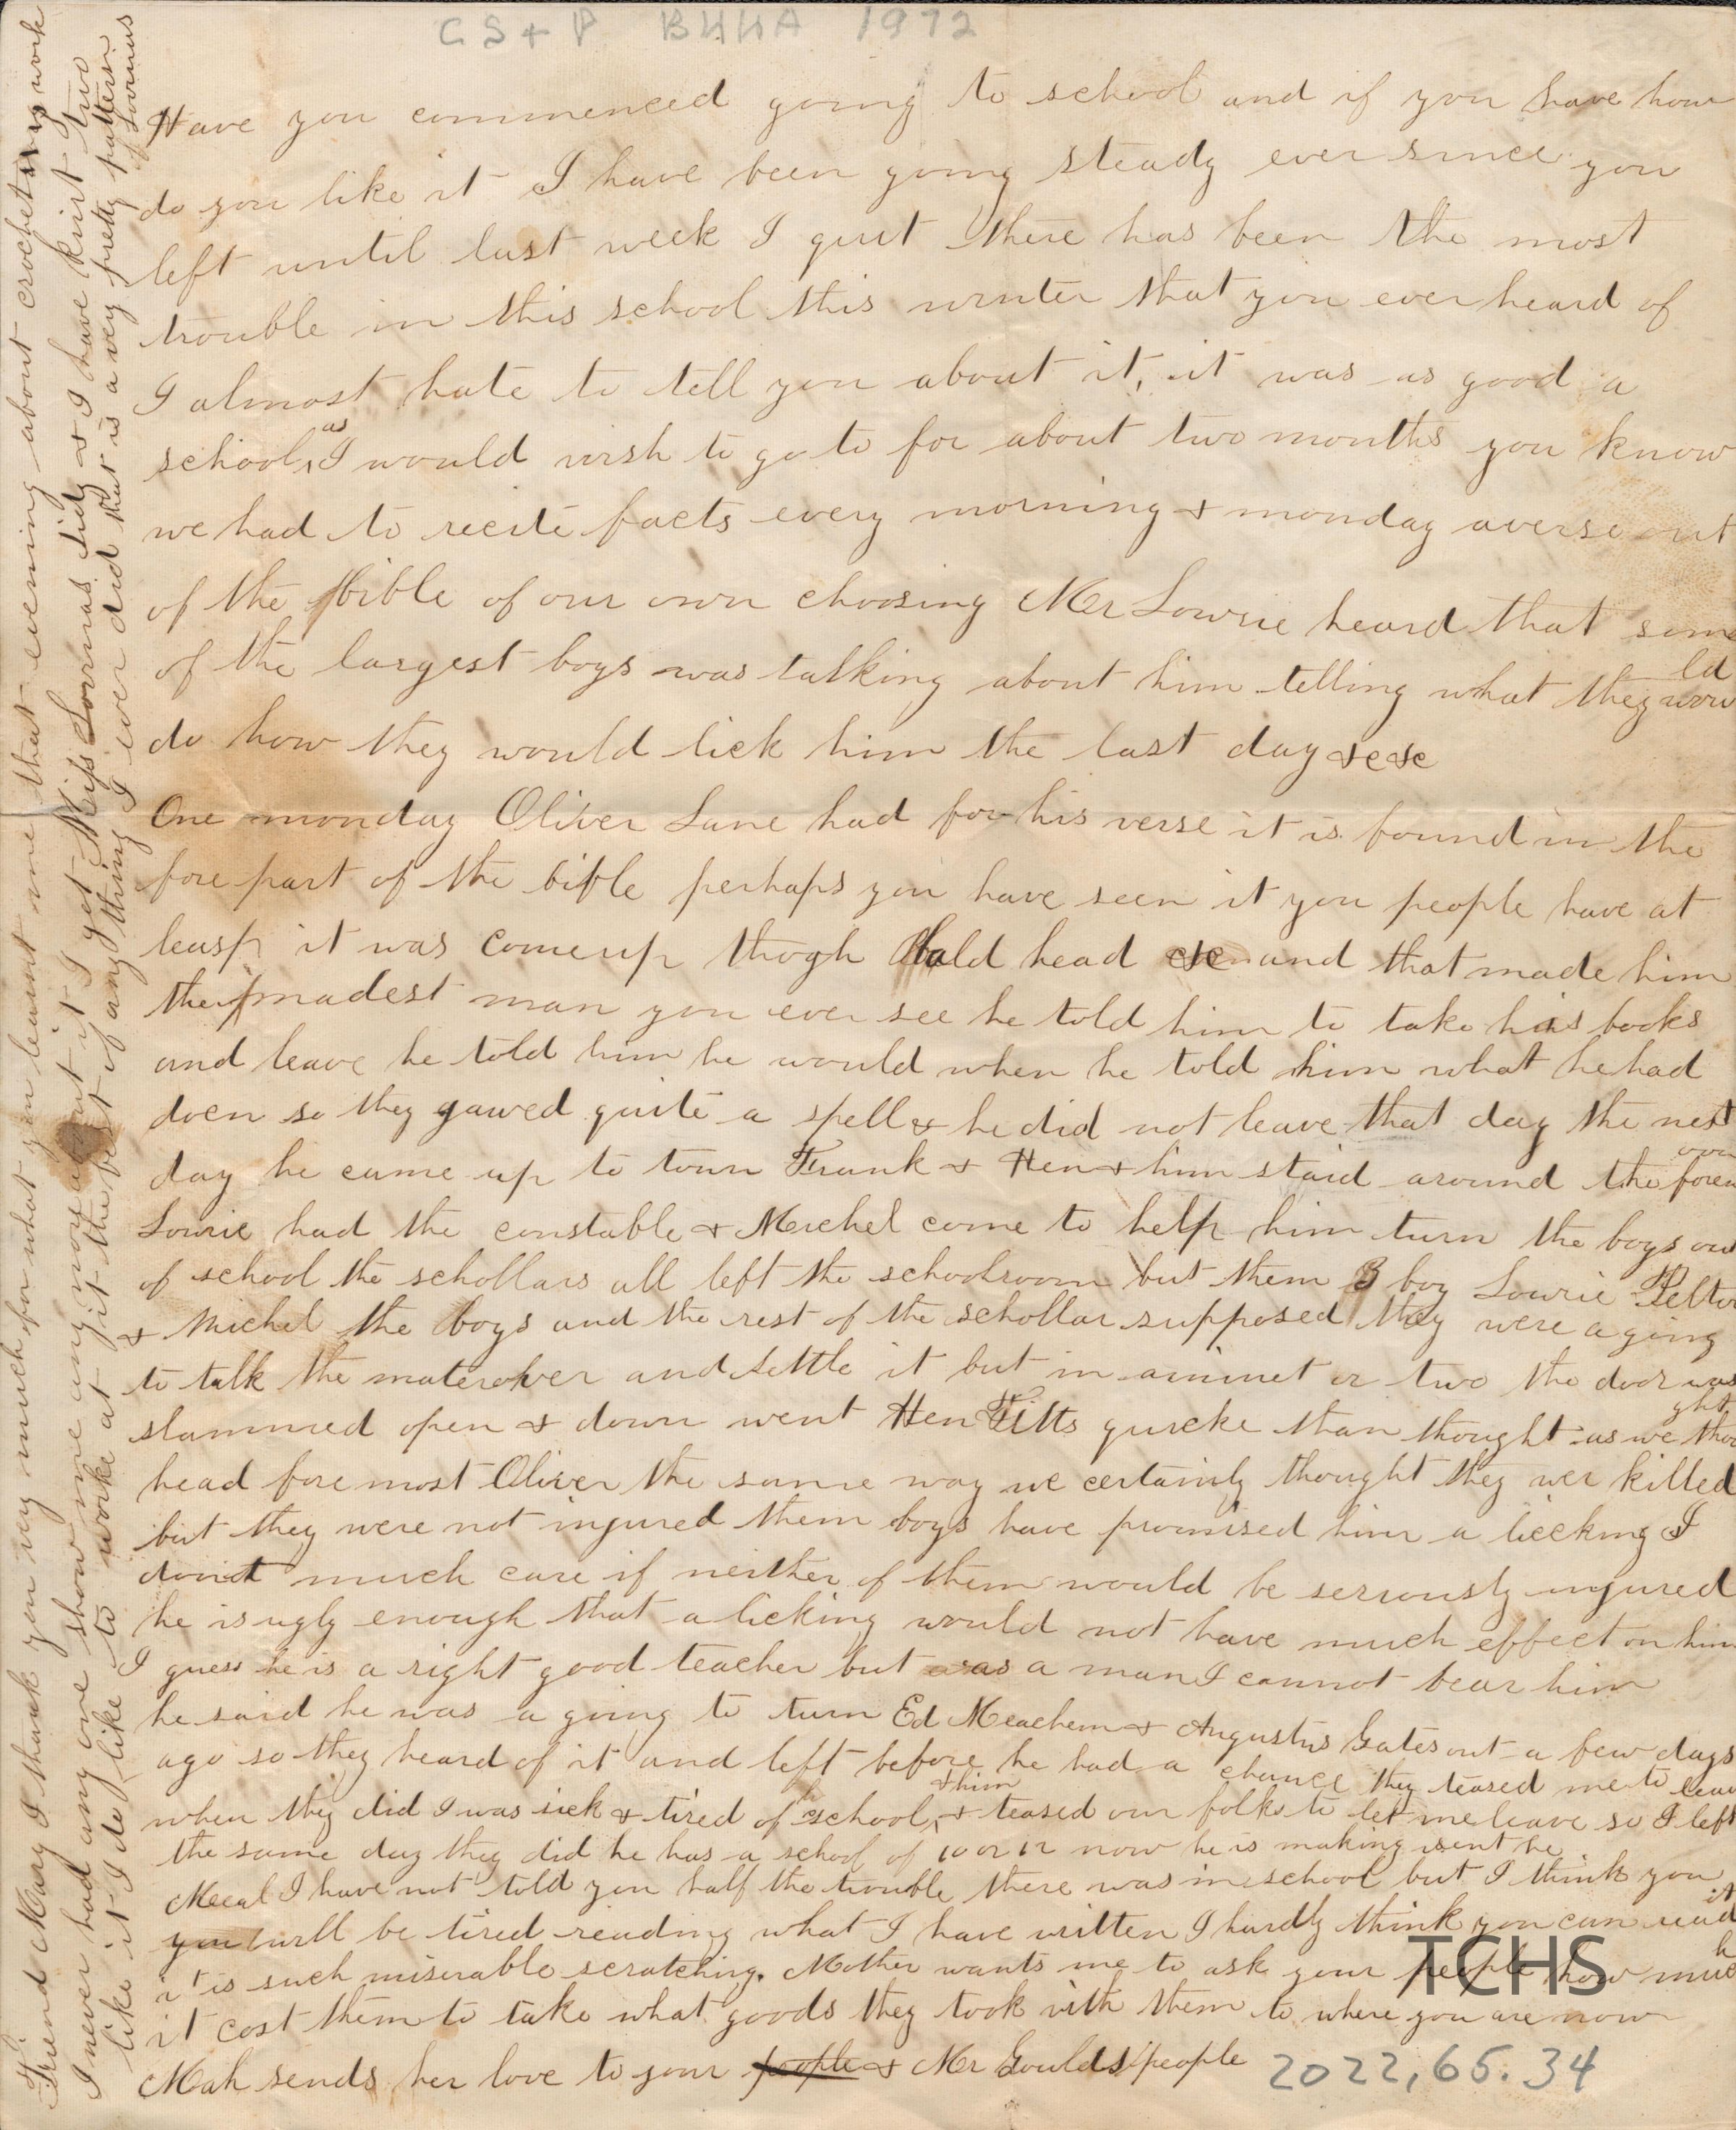 CS+P BHHA 1972
Have you commenced going to school and if you have how
do you like it I have been going steady ever since you
left until last week I quit there has been the most
trouble in this school this winter that you ever heard of
I almost hate to tell you about it, it was as good a
school, as I would wish to go to for about two months you know
we had to recite facts every morning & monday a verse out
of the bible of our own choosing Mr Lowrie heard that some
of the largest boys was talking about him telling what they would
do how they would lick him the last day &c &c
One monday Oliver Lane had for his verse it is found in the
fore part of the bible perhaps you have seen it you people have at
least it was come up thogh bald head &c and that made him
the madest man you ever see he told him to take his books
and leave he told him he would when he told him what he had
doen so they jawed quite a spell & he did not leave that day the next
day he came up to town Frank & Hen & him staid around the forenoon
Lowrie had the constable & Michel come to help him turn the boys out
of school the schollars all left the schoolroom but them 3 boy Lowrie Pelton
& Michel the boys and the rest of the schollar supposed they were a going
to talk the mater over and settle it but in a minet or two the door was
slammed open & down went Hen Fitts quicke than thought as we thought
head foremost Oliver the same way we certainly thought they wer killed
but they were not injured them boys have promised him a licking I
don't much care if neither of them would be seriously injured
he is ugly enough that a licking would not have much effect on him
I guess he is a right good teacher but as a man I cannot bear him
he said he was a going to turn Ed Meachem & Augustus Gates out a few days
ago so they heard of it and left before he had a chance they teased me to leave
when they did I was sick & tired of school, & him & teased our folks to let me leave so I left
the same day they did he has a school of 10 or 12 now he is making isent he
Mecal I have not told you half the trouble there was in school but I think you
you will be tired reading what I have written I hardly think you can read it
it is such miserable scratching. Mother wants me to ask your people how much
it cost them to take what goods they took with them to where you are now
Mah sends her love to your people & Mr Goulds people
2022,65.34
TCHS
Friend Mary I thank you very much for what you learnt me that evening about crochet work
I never had any one show me any more about it I got Miss Loomas did & I have knit two
like it I do like to worke at it the best of any thing I ever did that is a very pretty pattern
of Loomis